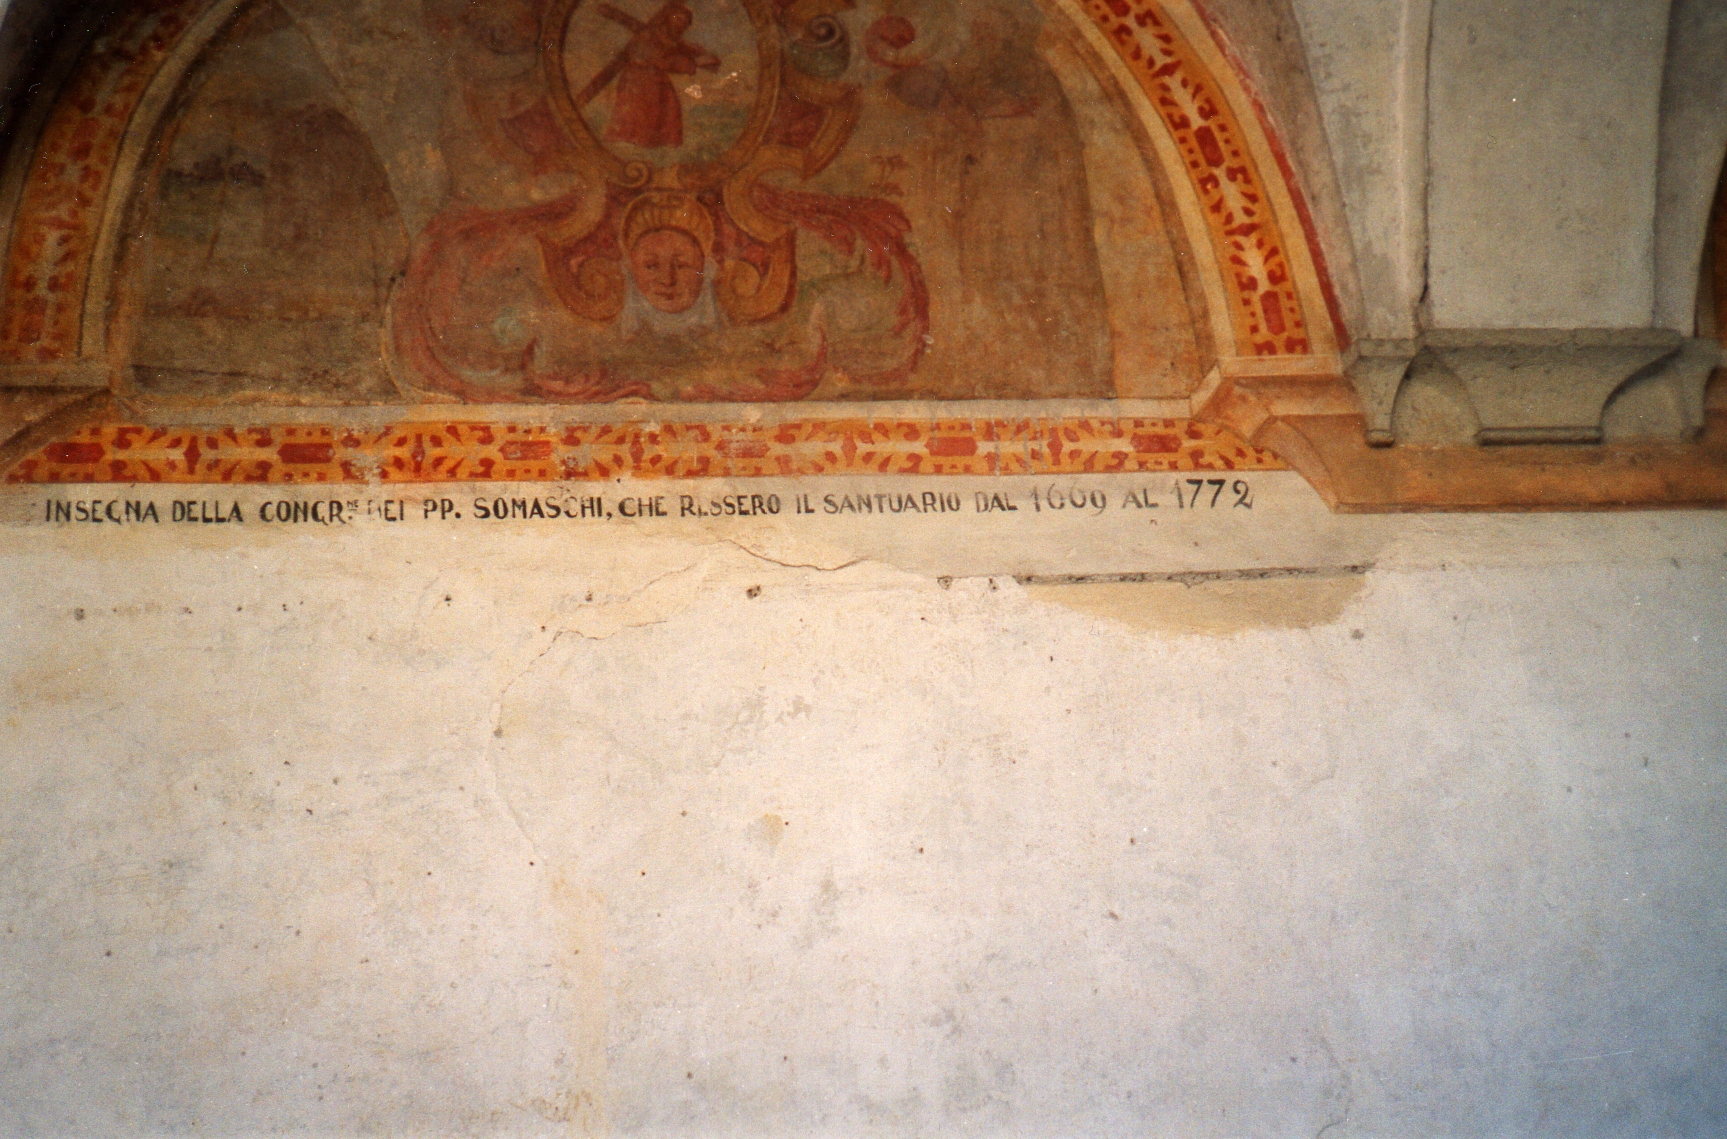 INSEGNA DELLA CONGR.NE DEI PP. SOMASCHI, CHE RESSERO IL SANTUARIO DAL 1669 AL 1772